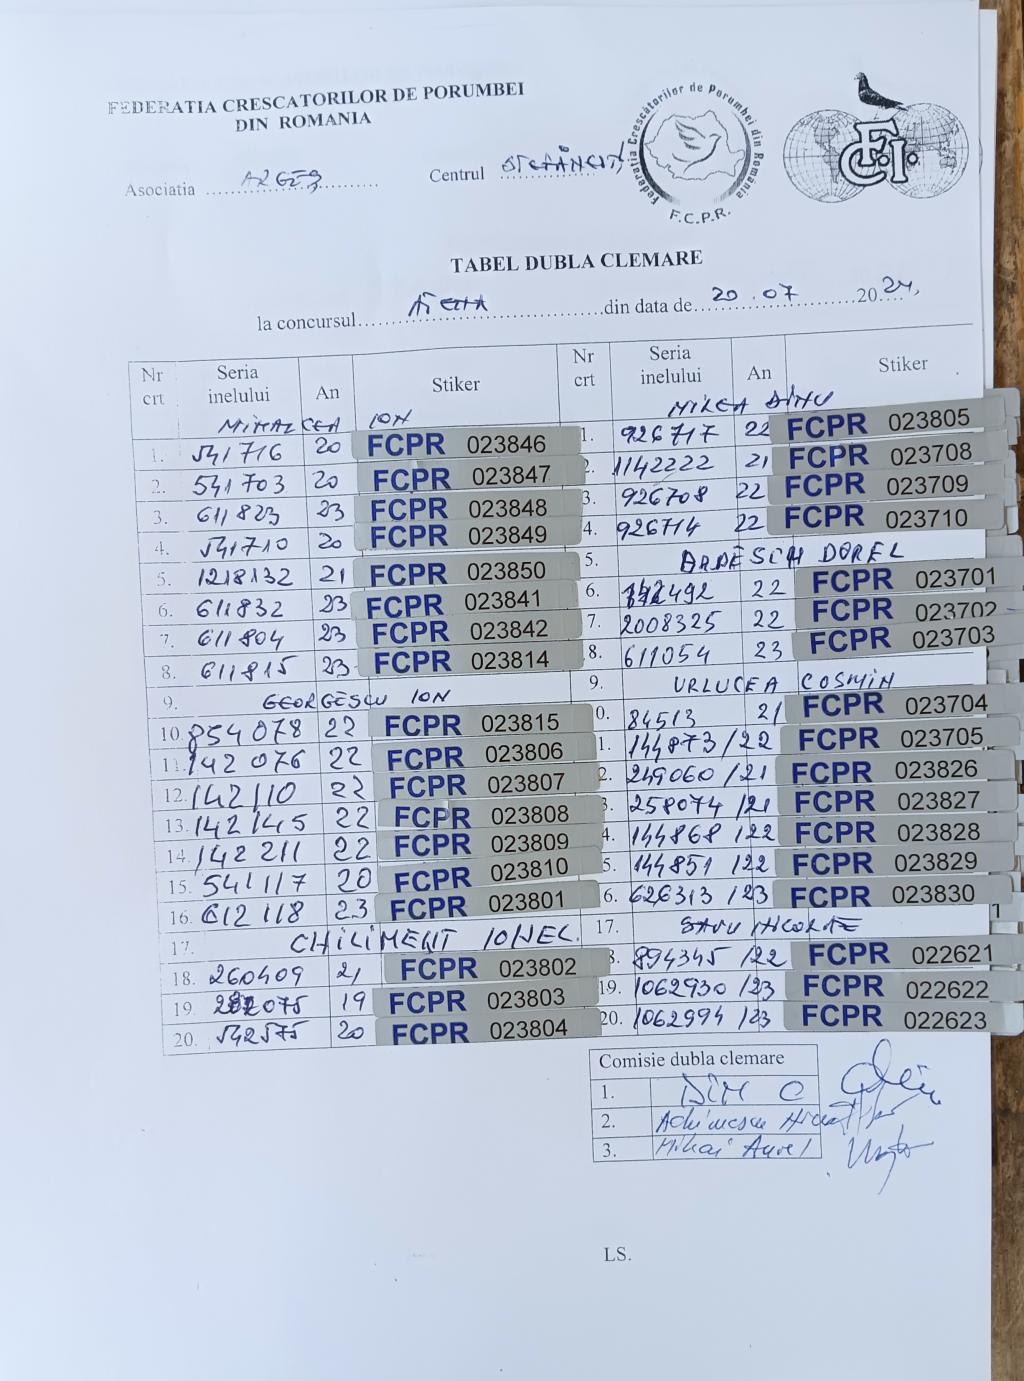 FEDERATIA CRESCATORILOR DE PORUMBEI
DIN ROMANIA
Federatia Crescătorilor de Porumbei din România
F.C.P.R.
FCI
Asociatia ARGEȘ Centrul ȘTEFĂNEȘTI
TABEL DUBLA CLEMARE
la concursul din data de 20.07 2024,
Nr crt Seria inelului An Stiker
MIHALCEA ION
1. 541716 20 FCPR 023846
2. 541703 20 FCPR 023847
3. 611823 23 FCPR 023848
4. 541710 20 FCPR 023849
5. 1218132 21 FCPR 023850
6. 611832 23 FCPR 023841
7. 611804 23 FCPR 023842
8. 611815 23 FCPR 023814
9. GEORGESCU ION
10. 854078 22 FCPR 023815
11. 142 076 22 FCPR 023806
12. 142110 22 FCPR 023807
13. 142145 22 FCPR 023808
14. 142 211 22 FCPR 023809
15. 541117 20 FCPR 023810
16. 612 118 23 FCPR 023801
17. CHILIMENT IONEL.
18. 260409 21 FCPR 023802
19. 075 19 FCPR 023803
20. 542575 20 FCPR 023804
Nr crt Seria inelului An Stiker
MILEA DINU
1. 926717 22 FCPR 023805
2. 1142222 21 FCPR 023708
3. 926708 22 FCPR 023709
4. 926714 22 FCPR 023710
5. DOREL
6. 492 22 FCPR 023701
7. 2008325 22 FCPR 023702
8. 611054 23 FCPR 023703
9. URLUCEA COSMIN
0. 84513 21 FCPR 023704
1. 144873/22 FCPR 023705
2. 249060/21 FCPR 023826
3. 258074/21 FCPR 023827
4. 144868/22 FCPR 023828
5. 144851/22 FCPR 023829
6. 626313/23 FCPR 023830
17. SAVU NICOLAE
8. 894345/22 FCPR 022621
19. 1062930/23 FCPR 022622
20. 1062994/23 FCPR 022623
Comisie dubla clemare
1. DIN C
2.
3. Mihai Aurel
LS.